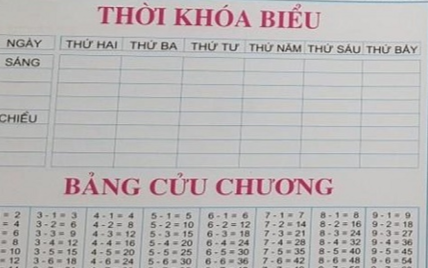 THỜI KHÓA BIỂU
NGÀY THỨ HAI THỨ BA THỨ TƯ THỨ NĂM THỨ SÁU THỨ BẢY
SÁNG
CHIỀU
BẢNG CỬU CHƯƠNG
= 2 3 - 1 = 3 4 - 1 = 4 5 - 1 = 5 6 - 1 = 6 7 - 1 = 7 8 - 1 = 8 9 - 1 = 9
= 4 3 - 2 = 6 4 - 2 = 8 5 - 2 = 10 6 - 2 = 12 7 - 2 = 14 8 - 2 = 16 9 - 2 = 18
= 6 3 - 3 = 9 4 - 3 = 12 5 - 3 = 15 6 - 3 = 18 7 - 3 = 21 8 - 3 = 24 9 - 3 = 27
= 8 3 - 4 = 12 4 - 4 = 16 5 - 4 = 20 6 - 4 = 24 7 - 4 = 28 8 - 4 = 32 9 - 4 = 36
= 10 3 - 5 = 15 4 - 5 = 20 5 - 5 = 25 6 - 5 = 30 7 - 5 = 35 8 - 5 = 40 9 - 5 = 45
= 12 3 - 6 = 18 4 - 6 = 24 5 - 6 = 30 6 - 6 = 36 7 - 6 = 42 8 - 6 = 48 9 - 6 = 54